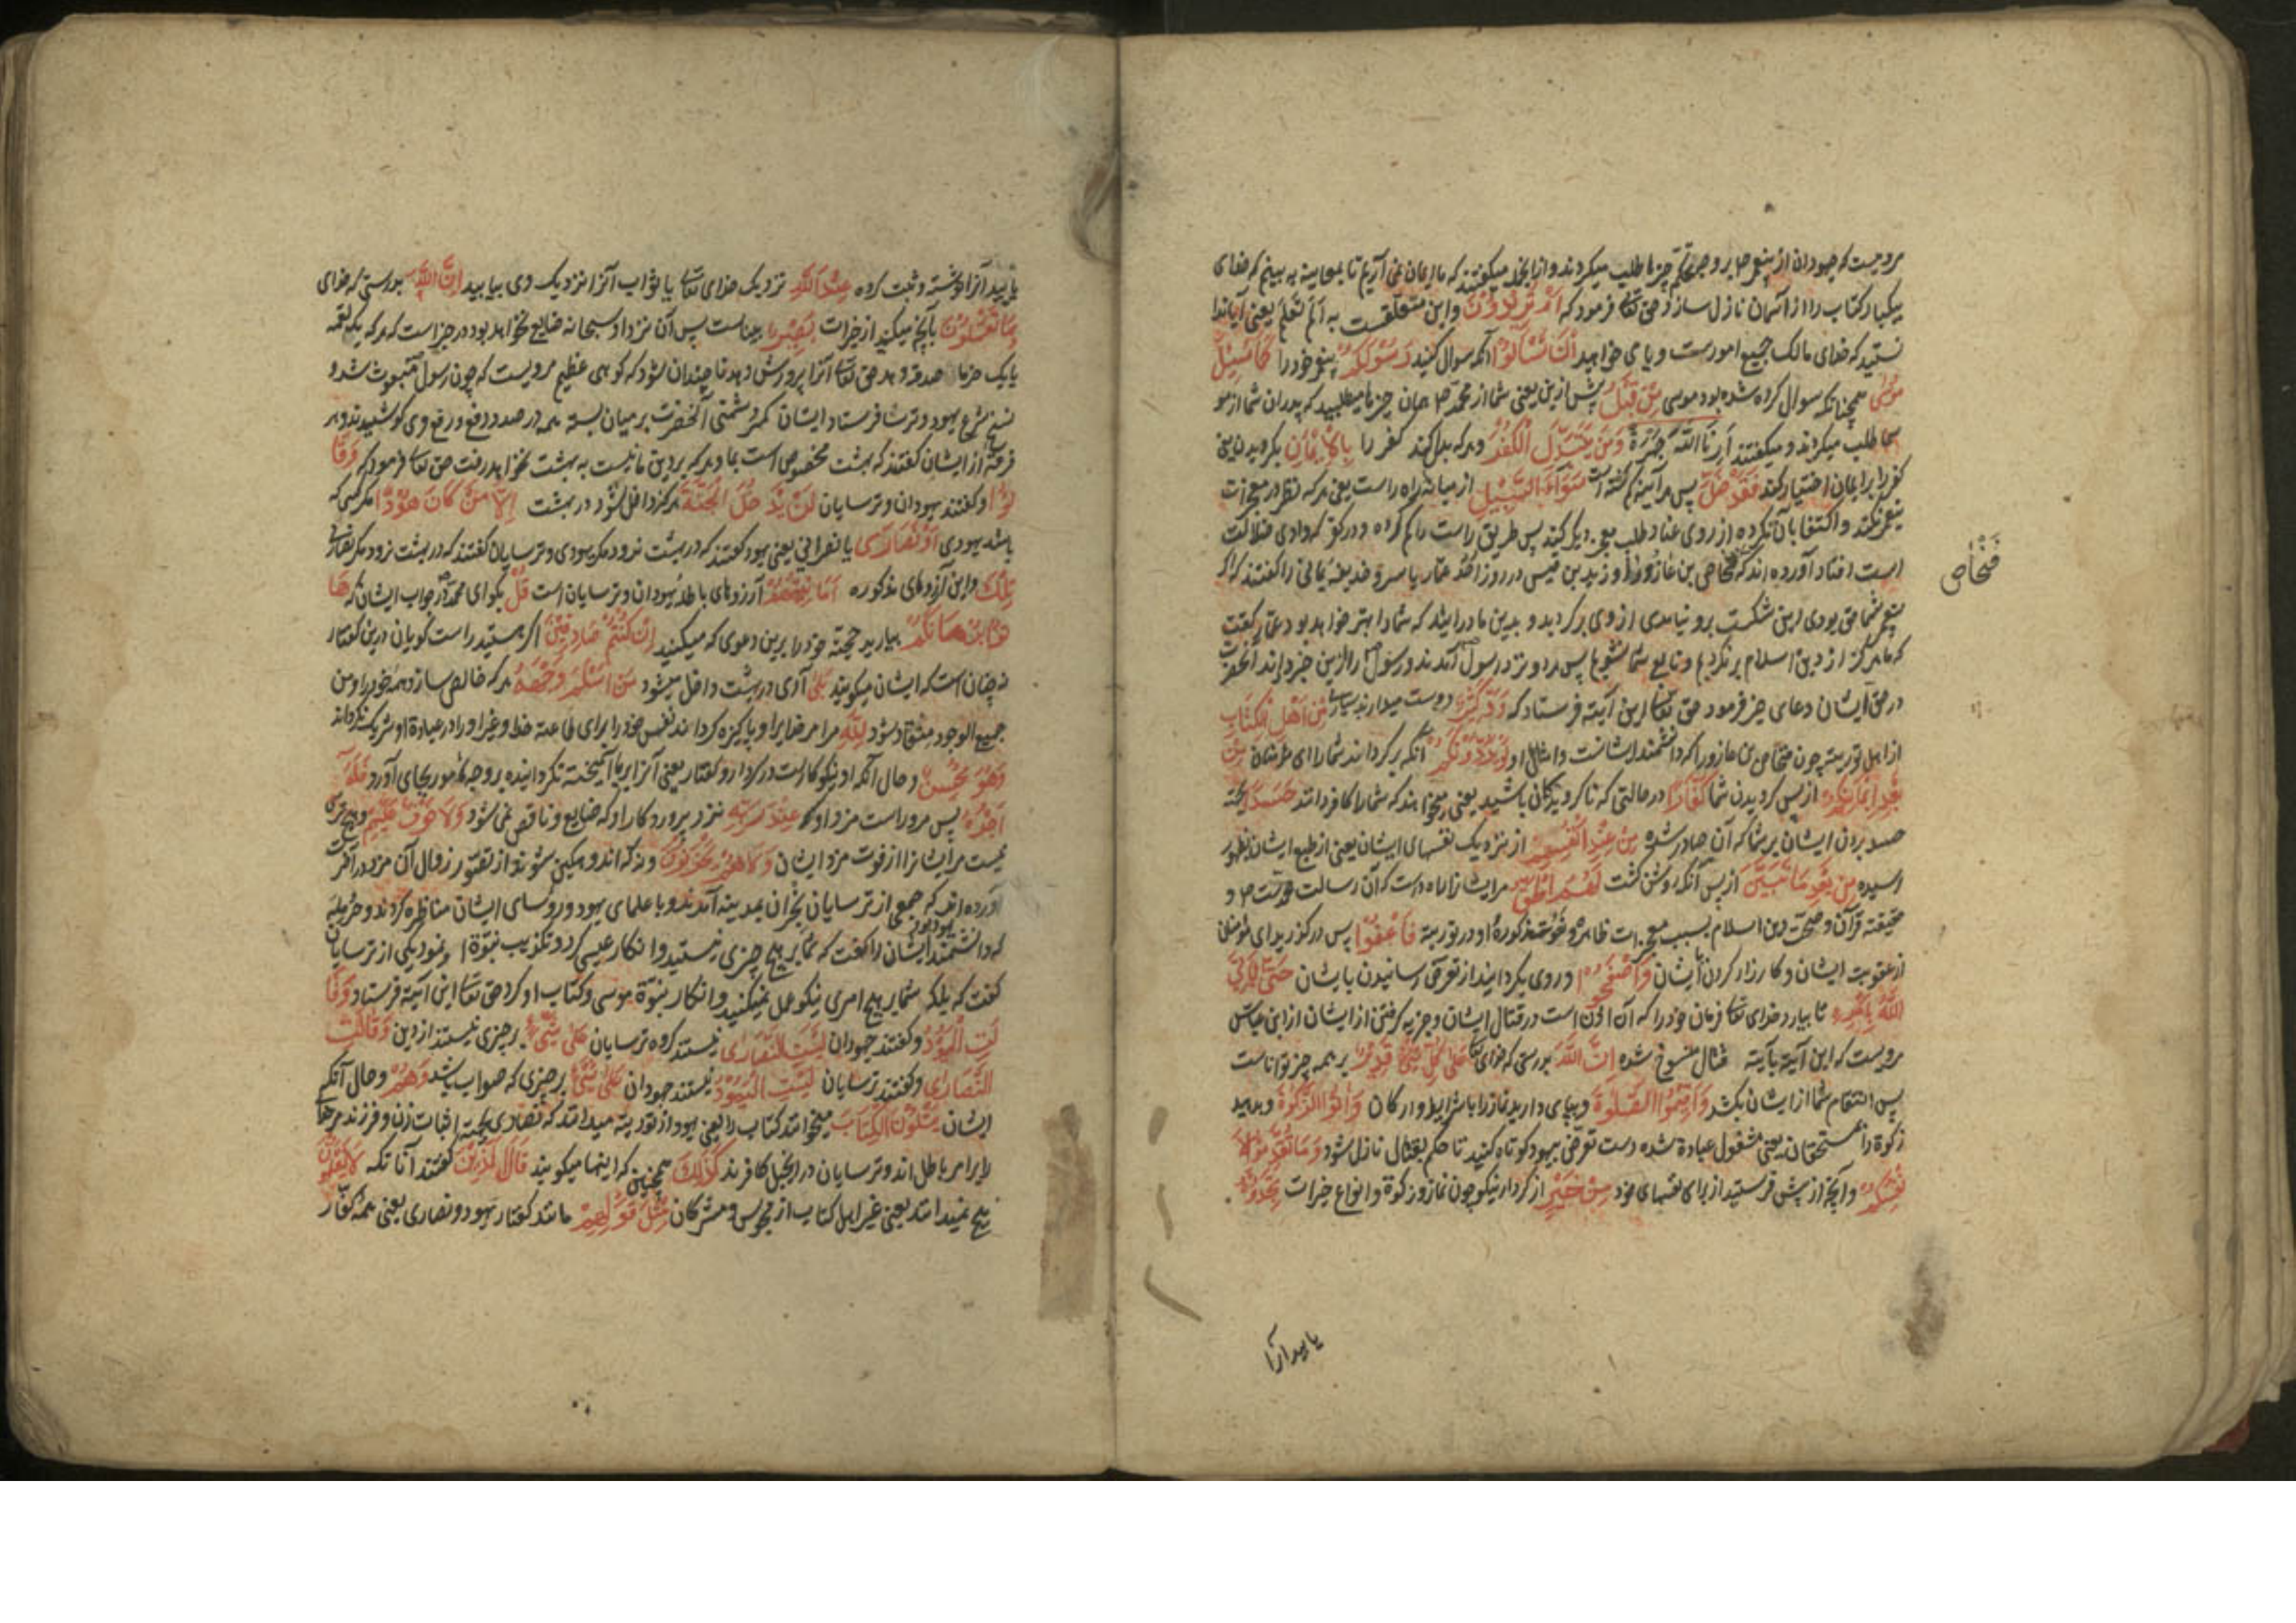 مرویست که جهودان از پیغمبر ص بر وجه تحکم چیزها طلب میکردند و ازانجمله میگفتند که ما ایمان نمی آریم تا بمعاینه به بینیم که خدای
بیکبار کتاب را از آسمان نازل سازد حق تعا فرمود که اَمْ تُرِیدُونَ و این متعلقست به اَلَم تَعْلَم یعنی آیا ندا
نستید که خدای مالک جمیع امورست و یا می خواهید اَنْ تَسْأَلُوا آنکه سوال کنید رَسُولَکُمْ پیغمبر خود را کَمَا سُئِلَ
مُوسٰی همچنانکه سوال کرده شده بود موسی مِنْ قَبْلُ پیش ازین یعنی شما از محمد ص همان چیزها میطلبید که پدران شما از مو
سی طلب میکردند و میگفتند اَرِنَا اللّٰهَ جَهْرَةً وَمَنْ یَتَبَدَّلِ الْکُفْرَ و هر که بدل کند کفر را بِالْاِیمَانِ بگرویدن یعنی
کفر را بر ایمان اختیار کند فَقَدْ ضَلَّ پس هر آینه گم گشته است سَوَاءَ السَّبِیلِ از میانه راه راست یعنی هر که نظر در معجزات
پیغمبر نکند و اکتفا بآن نکرده از روی عناد طلب معجزه دیگر کند پس طریق راست را گم کرده و در کو که وادی ضلالت
است افتاد آورده اند که فنحاص بن عازورا و زید بن قیس در روز اُحُد عمار یاسر و حذیفه یمانی را گفتند که اگر
پیغمبر شما حق بودی این شکست برو نیامدی از وی برگردید و بدین ما درآیید که شما را بهتر خواهد بود عمار گفت
که ما هرگز از دین اسلام برنگردیم و تابع شما نشویم پس هر دو نزد رسول آمدند و رسول را ازین خبر دادند آنحضرت
در حق ایشان دعای خیر فرمود حق تعا این آیته فرستاد که وَدَّ کَثِیرٌ دوست میدارند بسیاری مِنْ اَهْلِ الْکِتَابِ
از اهل توریته چون فنحاص بن عازورا که دانشمند ایشانست و امثال او لَوْ یَرُدُّونَکُمْ آنکه برگردانند شما را ای مؤمنان مِنْ
بَعْدِ اِیمَانِکُمْ از پس گرویدن شما کُفَّارًا در حالتی که ناگرویدگان باشید یعنی میخواهند که شما را کافر دانند حَسَدًا بجهة
حسد بردن ایشان بر شما که آن صادر شده مِنْ عِنْدِ اَنْفُسِهِمْ از نزدیک نفسهای ایشان یعنی از طبع ایشان بظهور
رسیده مِنْ بَعْدِ مَا تَبَیَّنَ از پس آنکه روشن گشت لَهُمُ الْحَقُّ مر ایشانرا راه راست که آن رسالت محمدست ص و
حقیقة قرآن و صحت دین اسلام بسبب معجزات ظاهره و نعوت مذکوره او در توریته فَاعْفُوا پس درگذرید ای مؤمنان
از عقوبت ایشان و کارزار کردن بایشان وَاصْفَحُوا و روی بگردانید از تعرض رسانیدن بایشان حَتّٰی یَاْتِیَ
اللّٰهُ بِاَمْرِهِ تا بیارد خدای تعا فرمان خود را که آن اذن است در قتال ایشان و جزیه گرفتن از ایشان از ابن عباس
مرویست که این آیته بآیته قتال منسوخ شده اِنَّ اللّٰهَ بدرستی که خدای تعا عَلٰی کُلِّ شَیْءٍ قَدِیرٌ بر همه چیز تواناست
پس انتقام شما از ایشان بکشد وَاَقِیمُوا الصَّلٰوةَ و بپای دارید نماز را با شرایط و ارکان وَاٰتُوا الزَّکٰوةَ و بدهید
زکوة را بمستحقان یعنی مشغول عبادة شده دست تعرض بیهود کوتاه کنید تا حکم بقتال نازل شود وَمَا تُقَدِّمُوا لِاَ
نْفُسِکُمْ و آنچه از پیش فرستید از برای نفسهای خود مِنْ خَیْرٍ از کردار نیکو چون نماز و زکوة و انواع خیرات تَجِدُوهُ
فَنْحَاص
یابید آنرا
یابید آنرا نوشته و ثبت کرده عِنْدَ اللّٰهِ نزدیک خدای تعا یا ثواب آنرا نزدیک وی بیابید اِنَّ اللّٰهَ بدرستی که خدای
بِمَا تَعْمَلُونَ بآنچه میکنید از خیرات بَصِیرٌ بیناست پس آن نزد او سبحانه ضایع نخواهد بود در خبر است که هر که یک لقمه
یا یک خرما صدقه دهد حق تعا آنرا پرورش دهد تا چندان شود که کوهی عظیم مرویست که چون رسول مبعوث شد و
نسخ شرع یهود و ترسا فرستاد ایشان کمر دشمنی آنحضرت بر میان بسته همه در صدد دفع و رفع وی کوشیدند و هر
فرقه از ایشان گفتند که بهشت مخصوص است بما و هر که بر دین ما نیست به بهشت نخواهد رفت حق تعا فرمود که وَقَا
لُوا و گفتند یهودان و ترسایان لَنْ یَدْخُلَ الْجَنَّةَ هرگز داخل نشود در بهشت اِلَّا مَنْ کَانَ هُودًا مگر کسی که
باشد یهودی اَوْ نَصَارٰی یا نصرانی یعنی یهود گفتند که در بهشت نرود مگر یهودی و ترسایان گفتند که در بهشت نرود مگر نصرانی
تِلْکَ و این آرزوهای مذکوره اَمَانِیُّهُمْ آرزوهای باطله یهودان و ترسایان است قُلْ بگو ای محمد در جواب ایشان که هَا
تُوا بُرْهَانَکُمْ بیارید حجته خود را برین دعوی که میکنید اِنْ کُنْتُمْ صَادِقِینَ اگر هستید راست گویان درین گفتار
نه چنان است که ایشان میگویند بَلٰی آری در بهشت داخل میشود مَنْ اَسْلَمَ وَجْهَهُ هر که خالص سازد همه خود را و من
جمیع الوجوه منقاد شود لِلّٰهِ مرا مر خدایرا و پاکیزه گرداند نفس خود را برای طاعته خدا و غیر او را در عبادة او شریک نگرداند
وَهُوَ مُحْسِنٌ و حال آنکه او نیکوکار است در کردار و گفتار یعنی آنرا بریا آمیخته نگردانیده بر وجه مأمور بجای آورد فَلَهُ
اَجْرُهُ پس مر وراست مزد او که عِنْدَ رَبِّهِ نزد پروردگار او که ضایع و ناقص نمی شود وَلَا خَوْفٌ عَلَیْهِمْ و هیچ ترسی
نیست مر ایشانرا از فوت مزد ایشان وَلَا هُمْ یَحْزَنُونَ و نه که اندوهگین شوند از تصور زوال آن مزد در آخرت
آورده اند که جمعی از ترسایان نجران بمدینه آمدند و با علمای یهود و رؤسای ایشان مناظره کردند و حریمله یهودی
که دانشمند ایشان را گفت که شما بر هیچ چیزی نیستید و انکار عیسی کرد و تکذیب نبوة او نمود یکی از ترسایان
گفت که بلکه شما بر هیچ امری نیکو عمل نمیکنید و انکار بنبوة موسی و کتاب او کرد حق تعا این آیته فرستاد وَقَا
لَتِ الْیَهُودُ و گفتند جهودان لَیْسَتِ النَّصَارٰی نیستند گروه ترسایان عَلٰی شَیْءٍ بر چیزی نیستند از دین وَقَالَتِ
النَّصَارٰی و گفتند ترسایان لَیْسَتِ الْیَهُودُ نیستند جهودان عَلٰی شَیْءٍ بر چیزی که صواب باشد وَهُمْ و حال آنکه
ایشان یَتْلُونَ الْکِتَابَ میخوانند کتاب را یعنی یهود از توریته میدانند که نصاری بجهة اثبات زن و فرزند مر خدا
را بر امر باطل اند و ترسایان در انجیل کافرند کَذٰلِکَ همچنین که اینها میگویند قَالَ الَّذِینَ گفتند آنانکه لَا یَعْلَمُونَ
هیچ نمیدانند یعنی غیر اهل کتاب از مجوس و مشرکان مِثْلَ قَوْلِهِمْ مانند گفتار یهود و نصاری یعنی همه کفّار